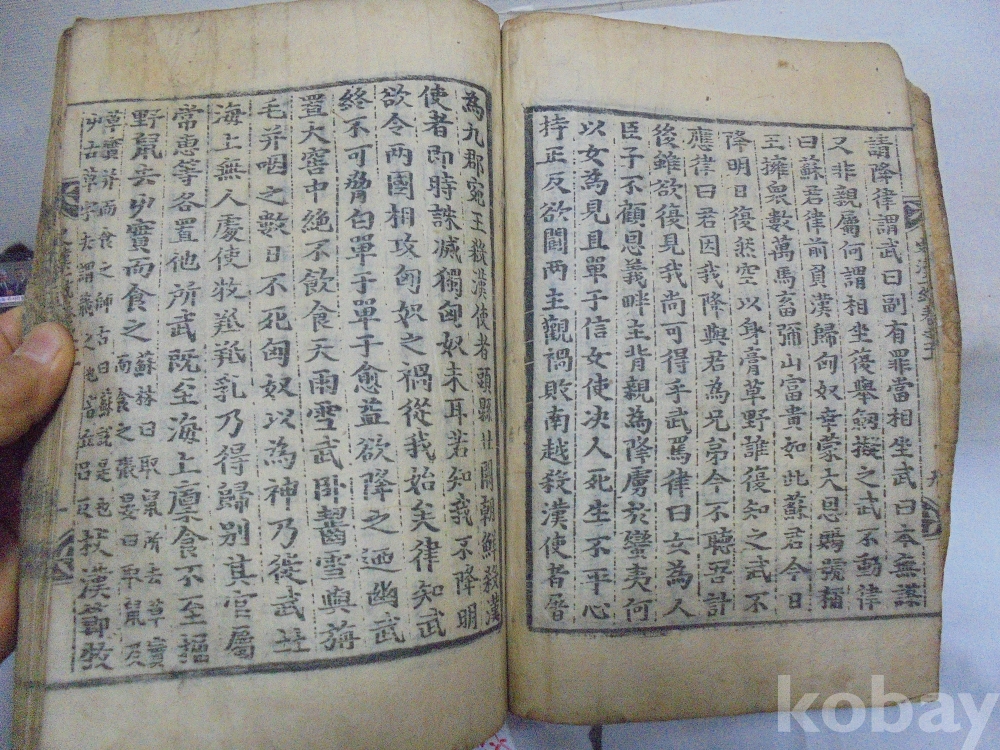 請降律謂武曰副有罪當相坐武曰本無謀
又非親屬何謂相坐復舉劒擬之武不動律
曰蘇君律前負漢歸匈奴幸蒙大恩賜號稱
王擁衆數萬馬畜彌山富貴如此蘇君今日
降明日復然空以身膏草野誰復知之武不
應律曰君因我降與君為兄弟今不聽吾計
後雖欲復見我尚可得乎武罵律曰女為人
臣子不顧恩義畔主背親為降虜於蠻夷何
以女為見且單于信女使決人死生不平心
持正反欲鬪兩主觀禍敗南越殺漢使者屠
為九郡宛王殺漢使者頭縣北闕朝鮮殺漢
使者即時誅滅獨匈奴未耳若知我不降明
欲令兩國相攻匈奴之禍從我始矣律知武
終不可脅白單于單于愈益欲降之迺幽武
置大窖中絶不飮食天雨雪武卧齧雪與旃
毛并咽之數日不死匈奴以為神乃徙武
海上無人處使牧羝羝乳乃得歸別其官屬
常惠等各置他所武既至海上廩食不至掘
野鼠去屮實而食之
蘇林曰取鼠所去草實
而食之張晏曰取鼠及
草實并而食之師古曰蘇說是也
屮古草字去謂藏之也音丘呂反
杖漢節牧
kobay